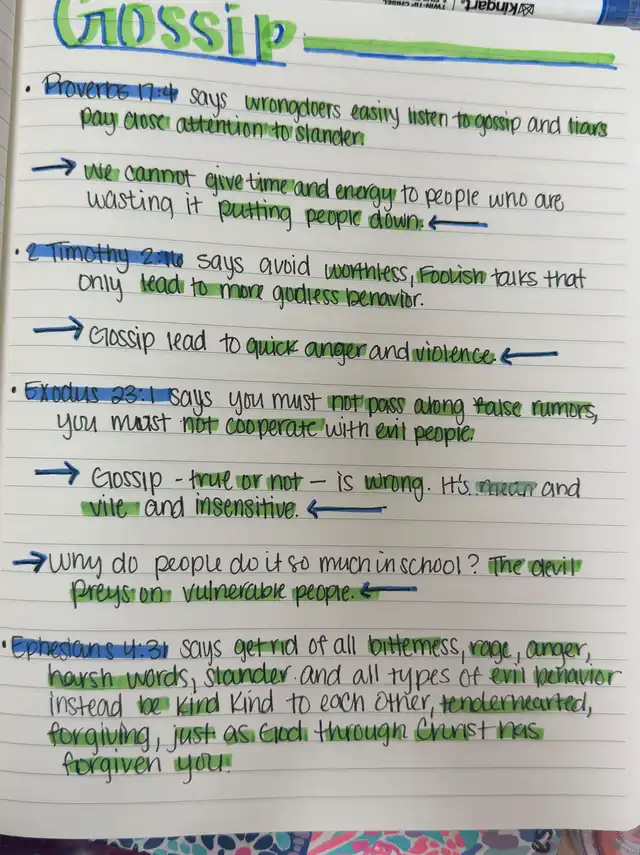 Kingart.
TWIN-TIP
Gossip
• Proverbs 17:4 says wrongdoers easily listen to gossip and liars
pay close attention to slander.
→ We cannot give time and energy to people who are
wasting it putting people down. ←
• 2 Timothy 2:16 says avoid worthless, Foolish talks that
only lead to more godless behavior.
→ Gossip lead to quick anger and violence. ←
• Exodus 23:1 says you must not pass along false rumors,
you must not cooperate with evil people.
→ Gossip - true or not - is wrong. It's mean and
vile and insensitive. ←
→ Why do people do it so much in school? The devil
preys on vulnerable people. ←
• Ephesians 4:31 says get rid of all bitterness, rage, anger,
harsh words, slander and all types of evil behavior
instead be kind kind to each other, tenderhearted,
forgiving, just as God through Christ has
forgiven you.